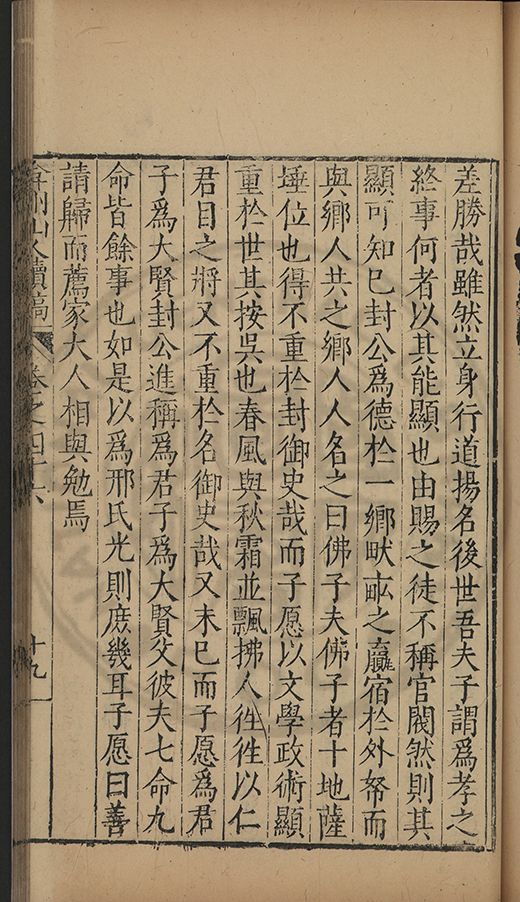 差勝哉雖然立身行道揚名後世吾夫子謂為孝之
終事何者以其能顯也由賜之徒不稱官閥然則其
顯可知已封公為德於一鄉畎畝之羸宿於外帑而
與鄉人共之鄉人人名之曰佛子夫佛子者十地薩
埵位也得不重於封御史哉而子愿以文學政術顯
重於世其按吳也春風與秋霜並飄拂人徃徃以仁
君目之將又不重於名御史哉又未已而子愿為君
子為大賢封公進稱為君子為大賢父彼夫七命九
命皆餘事也如是以為邢氏光則庶幾耳子愿曰善
請歸而薦家大人相與勉焉
弇州山人續稿 卷之四十六 十九